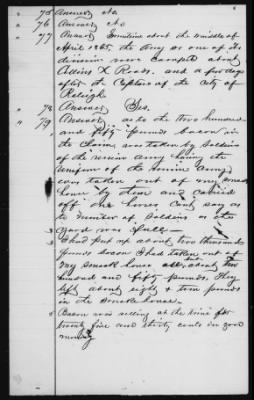 " 75 Answer No.
" 76 Answer No
" 77 Answer Sometime about the middle of
April 1865, the Army or one of its
division were camped about
X Roads. and a few days
after the Capture of the City of
Raleigh
" 78 Answer Yes.
" 79 Answer as to the two hundred
and fifty pounds bacon in
the Claim was taken by Soldiers
of the army having the
Uniform of the Army
was taken out of my smoke
house by them and carried
off on horses, cant say as
to number of Soldiers as the
yard was full—
I had put up about two thousand
pounds bacon I had taken out of
my smoke house all but about two
hundred and fifty pounds. They
left about eighty & ten pounds
in the smoke house.
Bacon was selling at the time for
twenty five and thirty cents in good
money